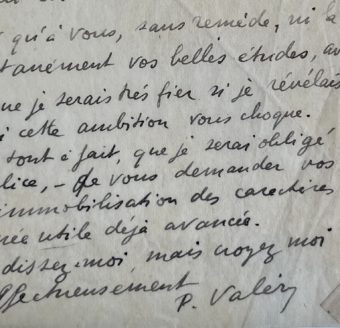 qu'à vous, sans remède, ni la
tanément vos belles études, av
que je serais très fier si je révélais
si cette ambition vous choque.
tout à fait, que je serai obligé
lice, - de vous demander vos
immobilisation des caractères
née utile déjà avancée.
dissez-moi, mais croyez moi
ffectueusement
P. Valéry